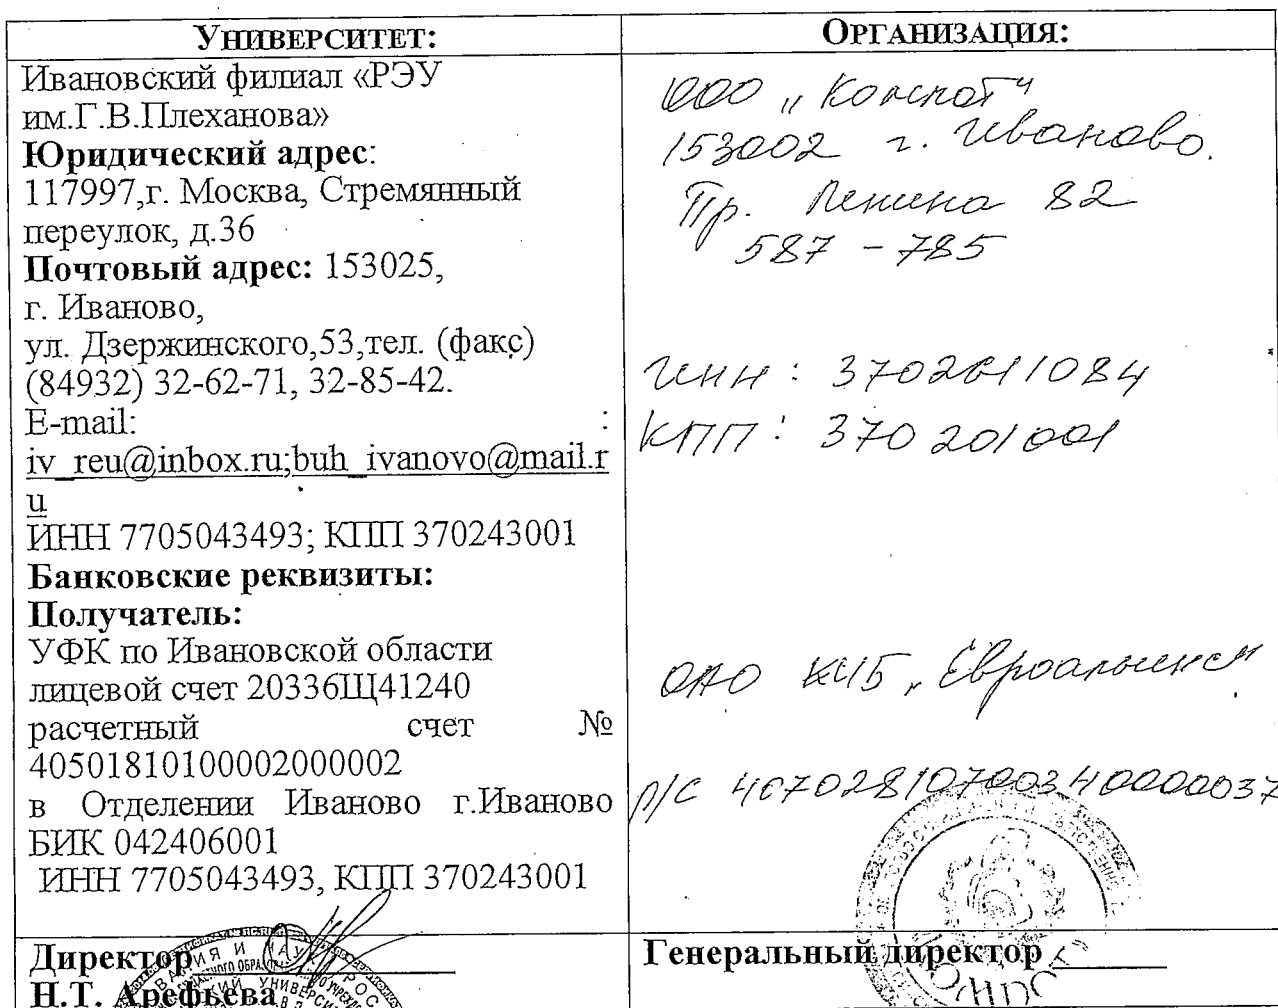 УНИВЕРСИТЕТ:
Ивановский филиал «РЭУ
им.Г.В.Плеханова»
Юридический адрес:
117997,г. Москва, Стремянный
переулок, д.36
Почтовый адрес: 153025,
г. Иваново,
ул. Дзержинского,53,тел. (факс)
(84932) 32-62-71, 32-85-42.
E-mail: :
iv_reu@inbox.ru;buh_ivanovo@mail.r
u
ИНН 7705043493; КПП 370243001
Банковские реквизиты:
Получатель:
УФК по Ивановской области
лицевой счет 20336Щ41240
расчетный счет №
40501810100002000002
в Отделении Иваново г.Иваново
БИК 042406001
ИНН 7705043493, КПП 370243001
Директор
Н.Т. Арефьева
ОРГАНИЗАЦИЯ:
ООО
153002 г. Иваново.
Пр. Ленина 82
587-785
ИНН: 3702611084
КПП: 370201001
ОАО КИБ "Евроальянс"
р/с 40702810700340000037
Генеральный директор